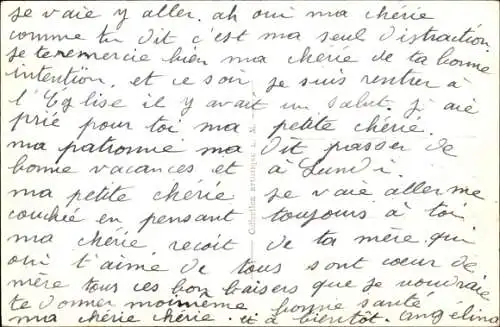 se vaie y aller. ah oui ma chérie
comme tu dit c'est ma seul distraction
je te remercie bien ma chérie de ta bonne
intention. et ce soir je suis rentrer à
l'Eglise il y avait un salut. j'aie
prié pour toi ma petite chérie.
ma patronne ma dit passer de
bonne vacances et à Lundi.
ma petite chérie je vaie aller me
couchée en pensant toujours à toi
ma chérie recoit de ta mère. qui
oui t'aime de tous sont coeur de
mère tous ces bon baisers que je voudraie
te donner moi même bonne santé
ma chérie chérie. et à bientôt. Angélina
Collection artistique L.